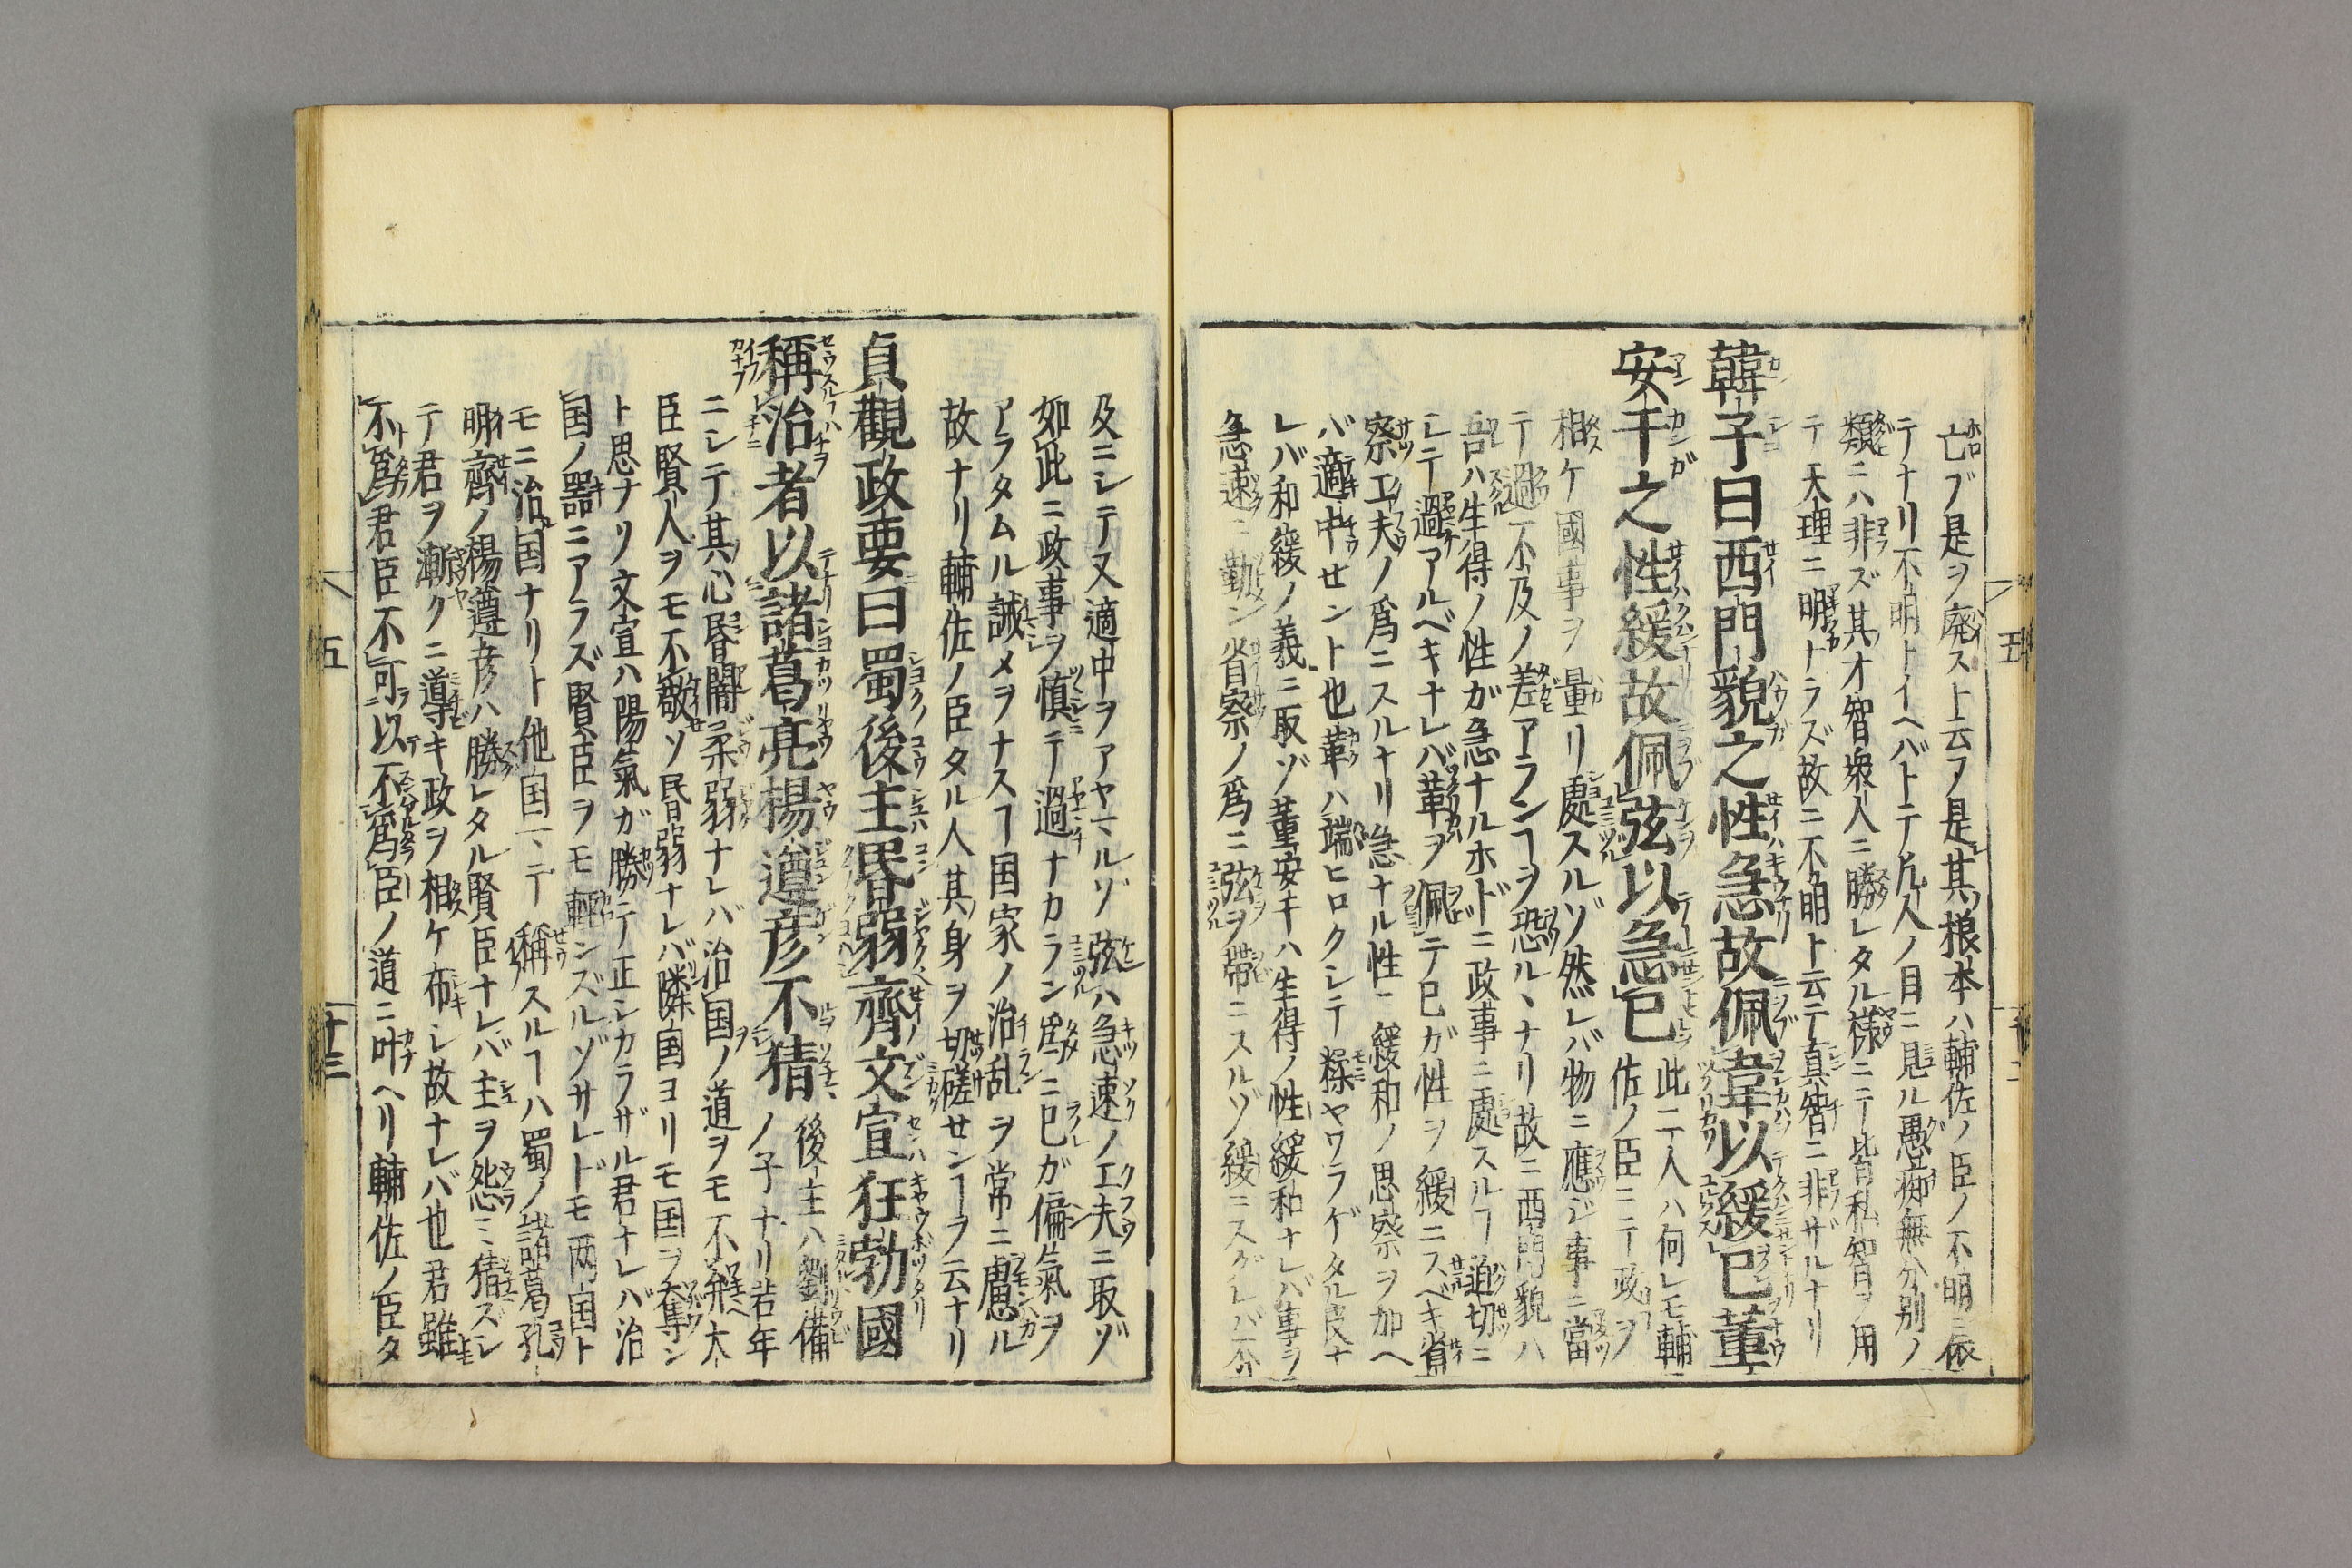 亡ブ是ヲ廃スト云フ是其根本ハ輔佐ノ臣ノ不明ニ依
テナリ不明トイヘバトテ凡人ノ目ニ見ル愚痴無分別ノ
類ニハ非ズ其才智衆人ニ勝レタル様ニテ皆私智ヲ用
テ天理ニ明トラズ故ニ不明ト云テ真智ニ非ザルナリ
韓子曰西門貌之性急故佩韋以緩已董
安于之性緩故佩弦以急已
此二人ハ何レモ輔
佐ノ臣ニテ政ヲ
相ケ國事ヲ量リ處スルゾ然レバ物ニ應ジ事ニ當
テ過不及ノ差アランヿヲ恐ルヽナリ故ニ西門貌ハ
吾ハ生得ノ性ガ急ナルホドニ政事ニ處スルヿ迫切ニ
シテ過アルベキナレバ韋ヲ佩テ已ガ性ヲ緩ニスベキ省
察工夫ノ爲ニスルナリ急ナル性ニ緩和ノ思察ヲ加ヘ
バ適中セント也韋ハ端ヒロクシテ糅ヤワラゲタル皮ナ
レバ和緩ノ義ニ取ゾ董安于ハ生得ノ性緩和ナレバ事ヲ
急速ニ勤ン省察ノ爲ニ弦ヲ帶ニスルゾ緩ニスグレバ不
及ニシテ又適中ヲアヤマルゾ弦ハ急速ノ工夫ニ取ゾ
如此ニ政事ヲ慎テ過ナカラン爲ニ已が偏氣ヲ
アラタムル誡メヲナスヿ国家ノ治乱ヲ常ニ慮ル
故ナリ輔佐ノ臣タル人其身ヲ切磋センヿヲ云ナリ
貞觀政要曰蜀後主昬弱齊文宣狂勃國
稱治者以諸葛亮楊遵彦不猜
後主ハ劉備
ノ子ナリ若年
ニシテ其心昬闇柔弱ナレバ治国ノ道ヲモ不觧大
臣賢人ヲモ不敬ソ昬弱ナレバ隣国ヨリモ国ヲ奪ン
ト思ナリ文宣ハ陽氣ガ勝テ正シカラザル君ナレバ治
国ノ器ニアラズ賢臣ヲモ輕ンズルゾサレドモ両国ト
モニ治国ナリト他国ニテ稱スルヿハ蜀ノ諸葛孔
明齊ノ楊遵彦ハ勝レタル賢臣ナレバ主ヲ怨ミ猜ズシ
テ君ヲ漸クニ導キ政ヲ相ケ布シ故ナレバ也君雖
不爲君臣不可以不爲臣ノ道ニ叶ヘリ輔佐ノ臣タ
五
十三